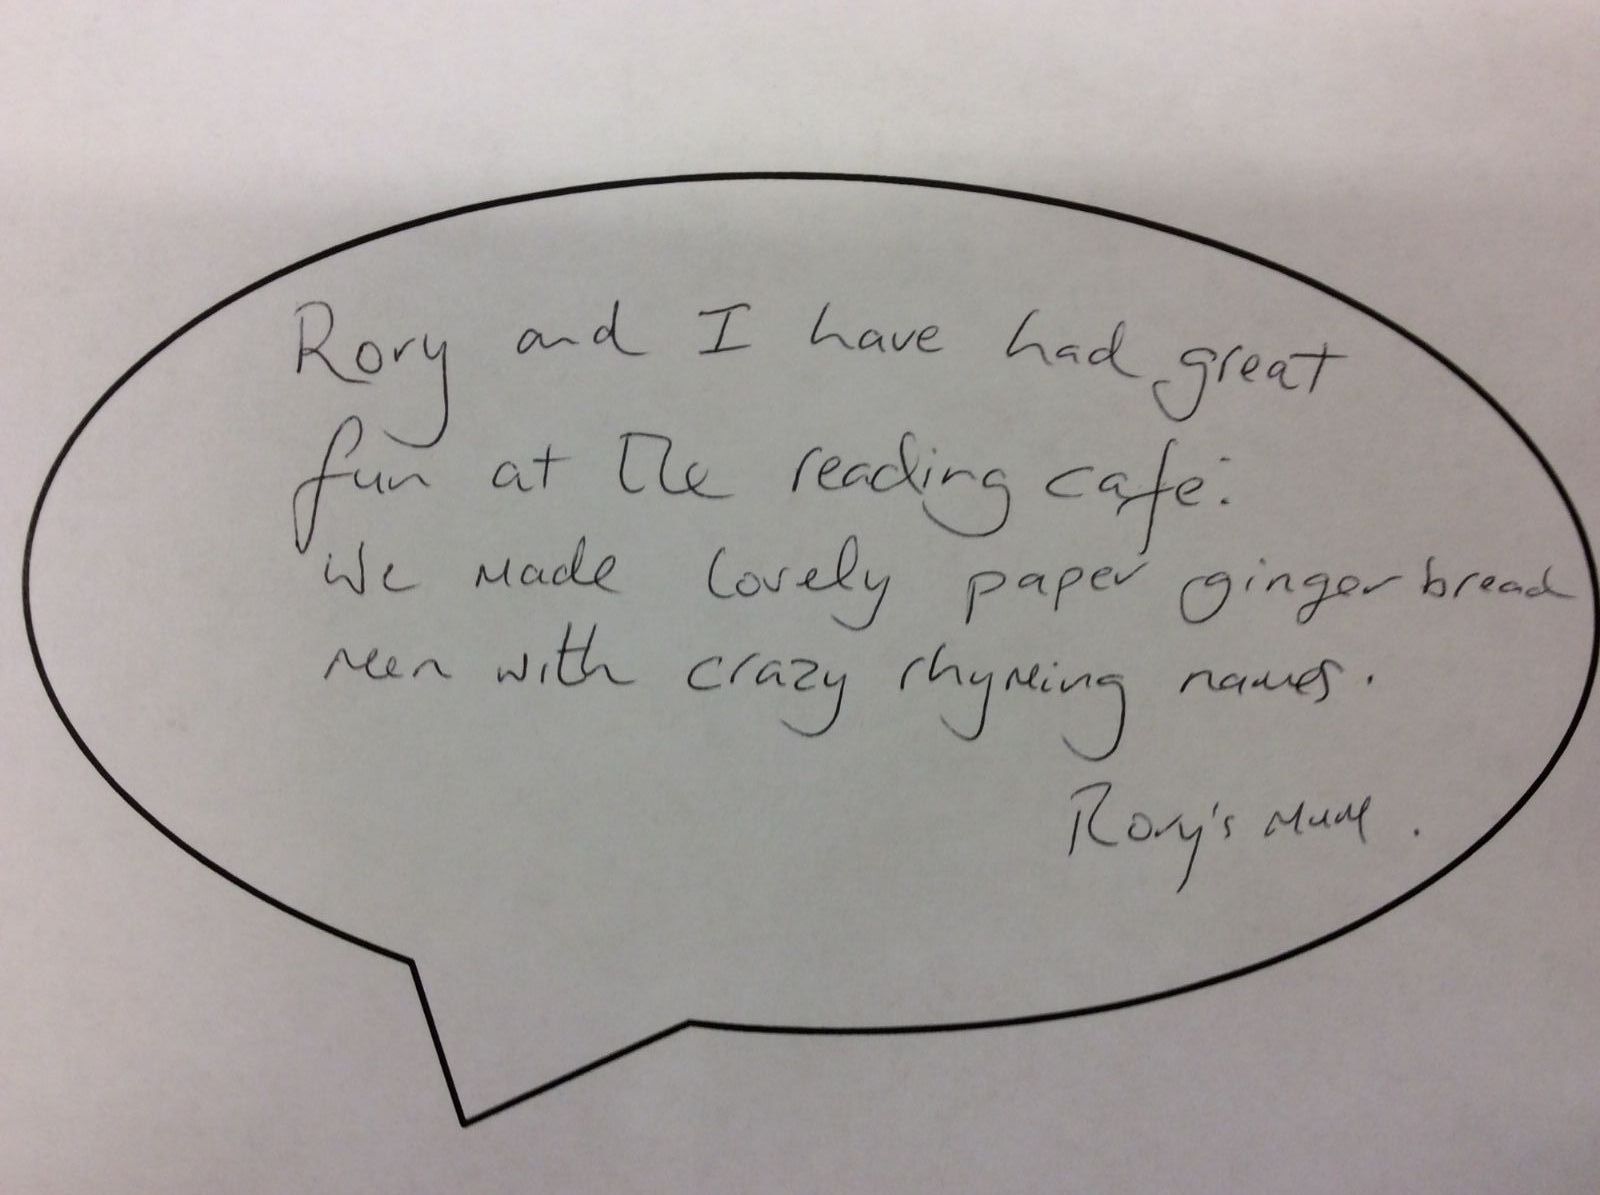 Rory and I have had great
fun at the reading cafe.
We made lovely paper gingerbread
men with crazy rhyming names.
Rory's mum.